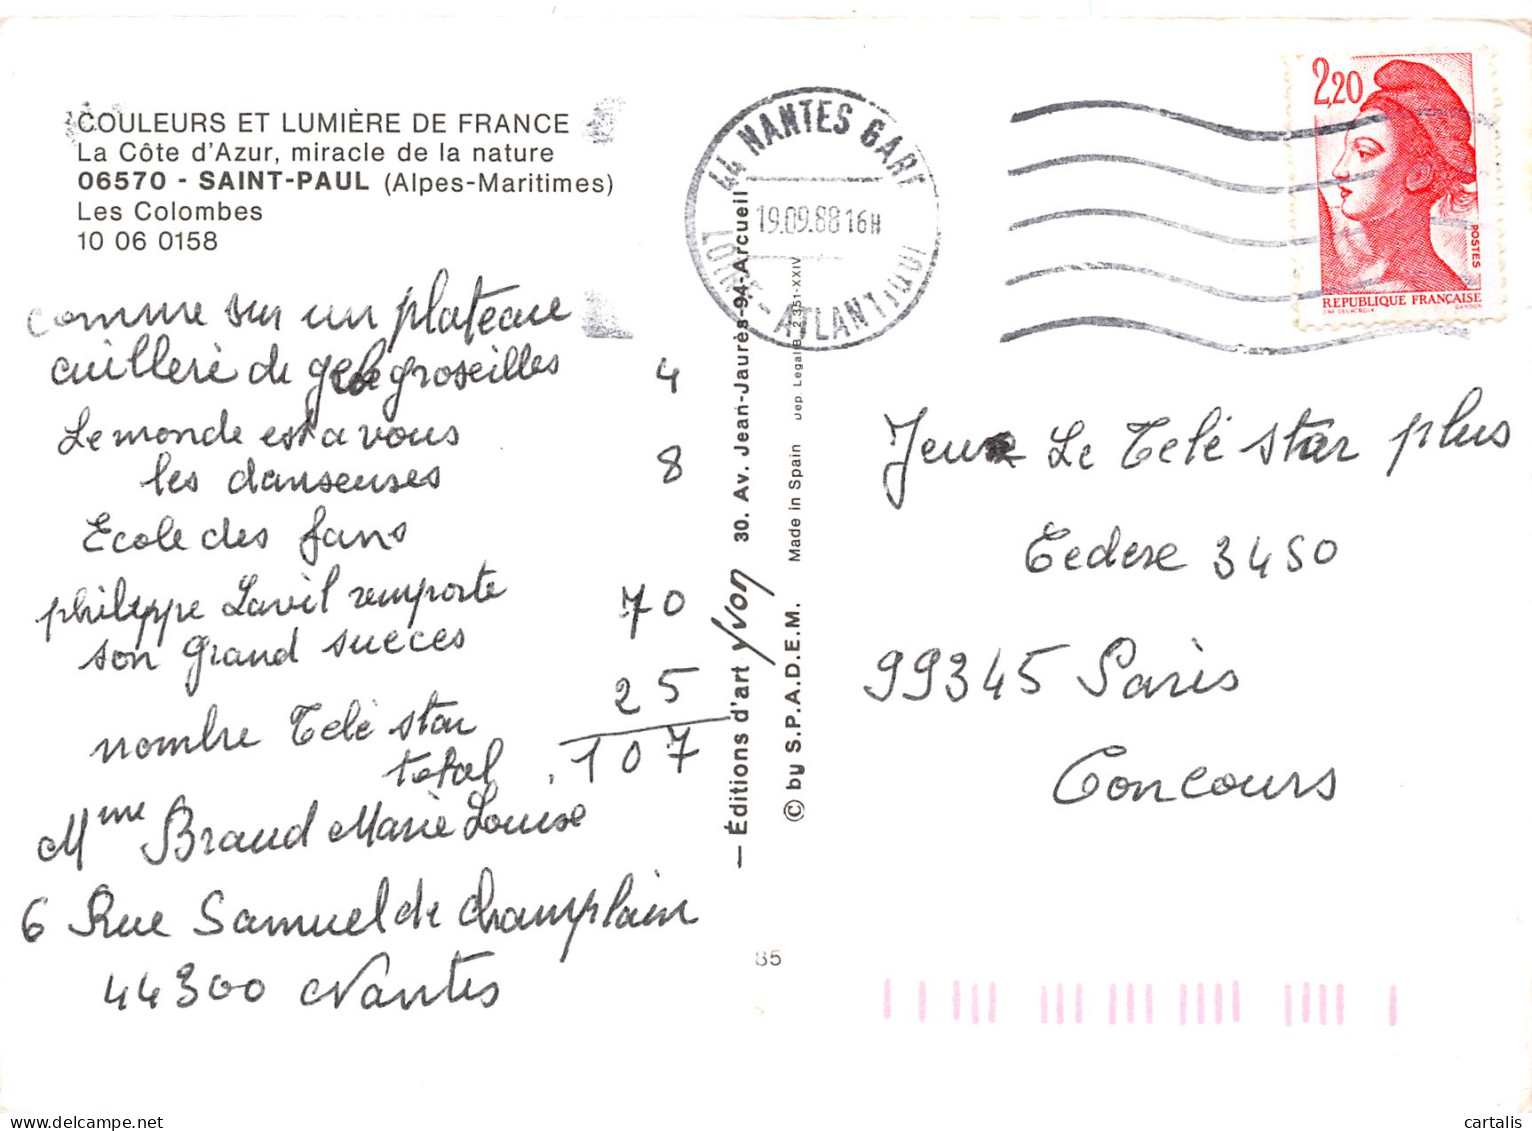 COULEURS ET LUMIÈRE DE FRANCE
La Côte d'Azur, miracle de la nature
06570 - SAINT-PAUL (Alpes-Maritimes)
Les Colombes
10 06 0158
comme sur un plateau
cuillere de gele groseilles 4
Le monde est a vous
les danseuses 8
Ecole des fans
philippe Lavil remporte 70
son grand succes
nombre Télé star 25
total 107
Mme Braud Marie Louise
6 Rue Samuel de Champlain
44300 Nantes
— Éditions d'art yvon 30. Av. Jean-Jaurès-94-Arcueil
© by S.P.A.D.E.M. Made in Spain Dep. Legal B. 2.351-XXIV
85
44 NANTES GARE
19.09.88 16H
LOIRE-ATLANTIQUE
2,20
POSTES
REPUBLIQUE FRANÇAISE
Jeux Le Télé star plus
Cedex 3450
99345 Paris
Concours
cartalis